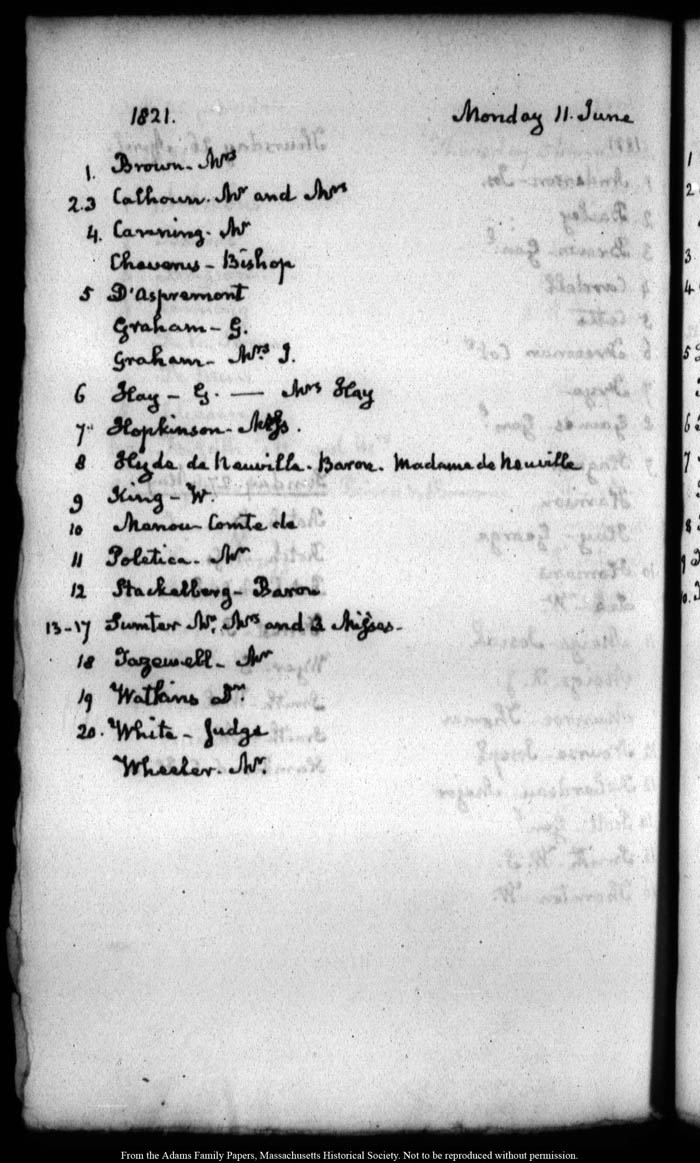 1821. Monday 11. June
1. Brown. Mrs
2.3 Calhoun. Mr and Mrs
4. Canning. Mr
Cheverus - Bishop
5 D'Aspremont
Graham - G.
Graham - Mrs J.
6 Hay - G. — Mrs Hay
7 Hopkinson.
8 Hyde de Neuville. Baron. Madame de Neuville
9 King - W.
10 Menou Comte de
11 Poletica. Mr
12 Stackelberg - Baron
13-17 Sumter Mr. Mrs and 3 Misses -
18 Tazewell - Mr
19 Watkins Dr.
20. White - Judge
Wheeler. Mr.
From the Adams Family Papers, Massachusetts Historical Society. Not to be reproduced without permission.